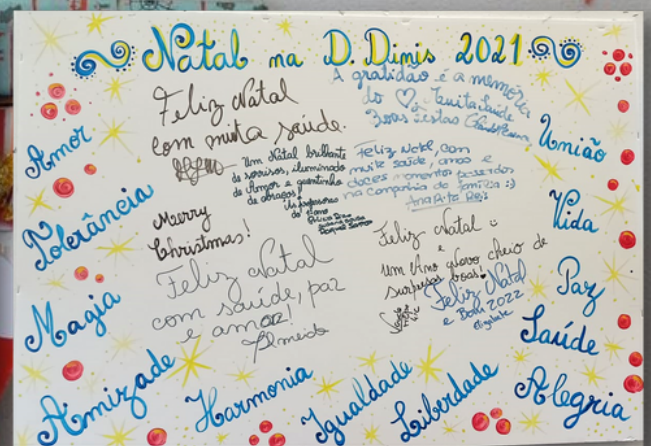 Natal na D. Dinis 2021
Feliz Natal
com muita saúde.
A gratidão é a memória
do ♡. Muita Saúde
Boas Festas
Um Natal brilhante
de sorrisos, iluminado
de Amor e quentinho
de abraços!
As professoras
do 1º ano
Feliz Natal, com
muita saúde, amor e
doces momentos passados
na companhia da família :)
Ana Rita Reis
Merry
Christmas!
Feliz Natal
com saúde, paz
e amor!
Almeida
Feliz Natal
e
um Ano Novo cheio de
surpresas boas!
Feliz Natal
e Bom 2022
Elisabete
Amor
Tolerância
Magia
Amizade
Harmonia
Igualdade
Liberdade
União
Vida
Paz
Saúde
Alegria